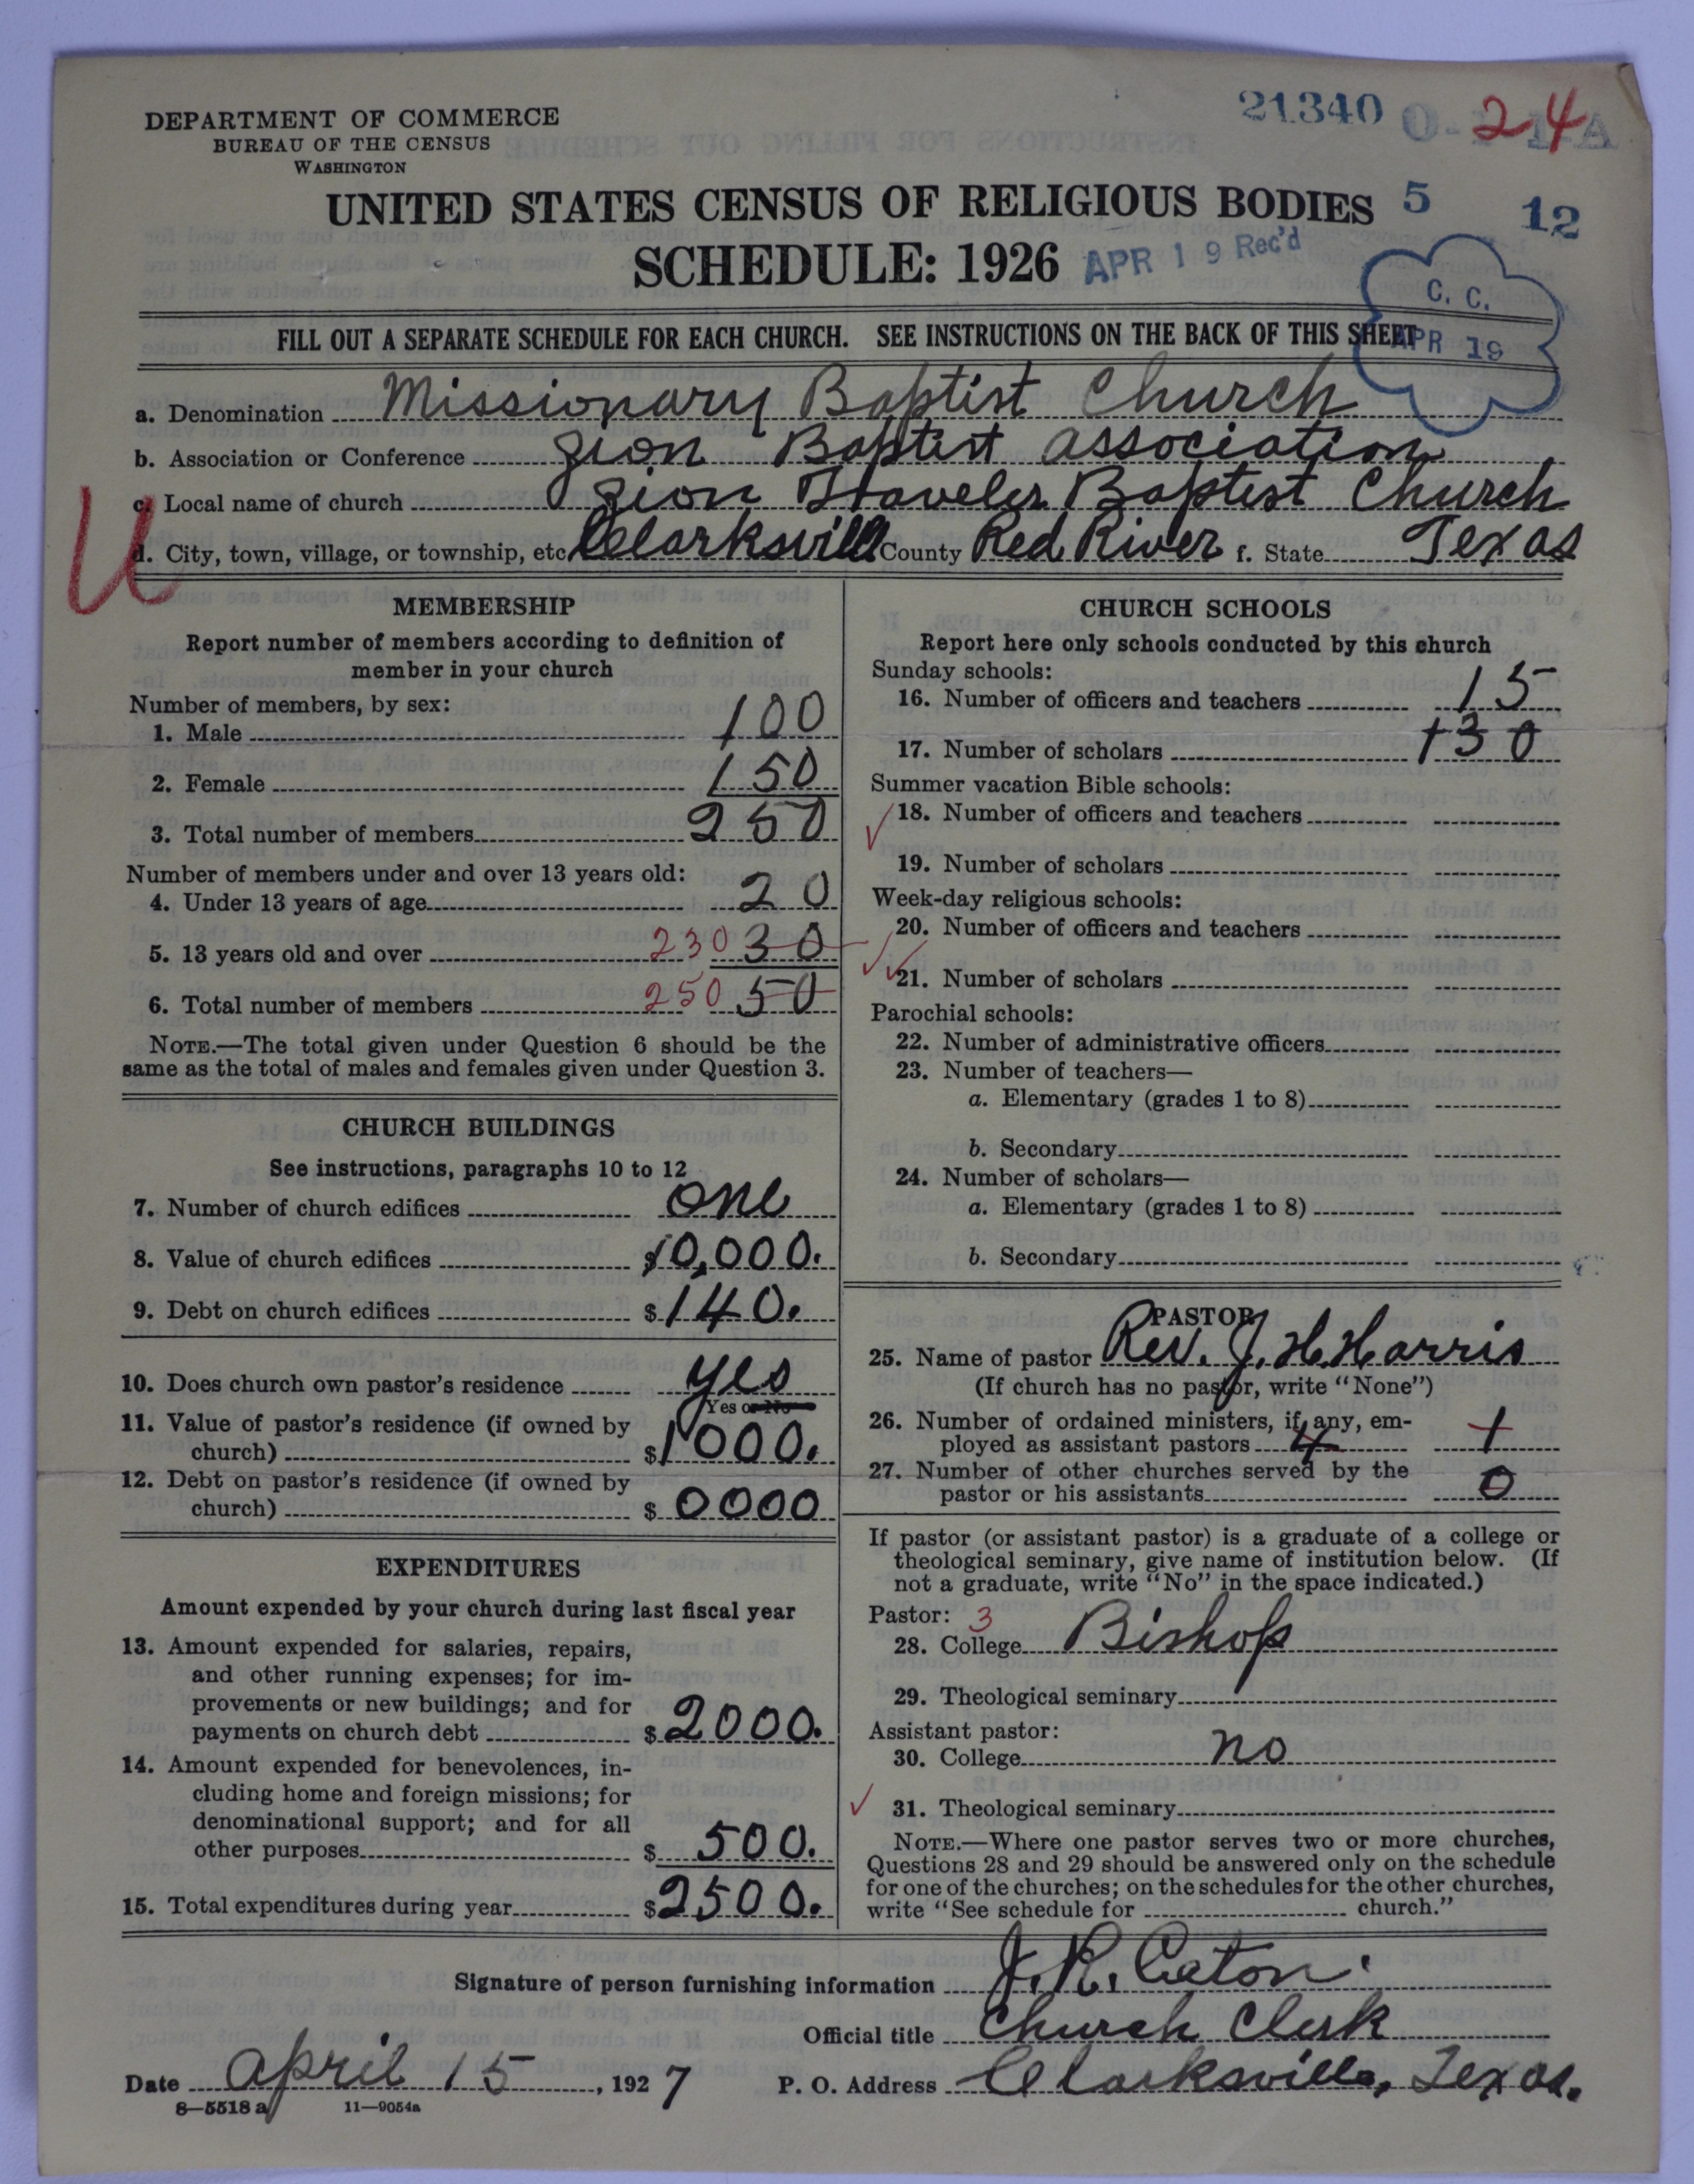 DEPARTMENT OF COMMERCE
BUREAU OF THE CENSUS
WASHINGTON
21340
24
UNITED STATES CENSUS OF RELIGIOUS BODIES 5 12
SCHEDULE: 1926 APR 19 Rec'd
C. C.
APR 19
FILL OUT A SEPARATE SCHEDULE FOR EACH CHURCH. SEE INSTRUCTIONS ON THE BACK OF THIS SHEET
a. Denomination Missionary Baptist Church
b. Association or Conference Zion Baptist association
c. Local name of church Zion Traveler Baptist Church
U
d. City, town, village, or township, etc Clarksvill County Red River f. State Texas
MEMBERSHIP
Report number of members according to definition of
member in your church
Number of members, by sex:
1. Male 100
2. Female 150
3. Total number of members 250
Number of members under and over 13 years old:
4. Under 13 years of age 20
5. 13 years old and over 230 30
6. Total number of members 250 50
NOTE.—The total given under Question 6 should be the
same as the total of males and females given under Question 3.
CHURCH BUILDINGS
See instructions, paragraphs 10 to 12
7. Number of church edifices one
8. Value of church edifices $10,000.
9. Debt on church edifices $140.
10. Does church own pastor's residence yes
Yes or No
11. Value of pastor's residence (if owned by
church) $1000.
12. Debt on pastor's residence (if owned by
church) $ 0000
EXPENDITURES
Amount expended by your church during last fiscal year
13. Amount expended for salaries, repairs,
and other running expenses; for im-
provements or new buildings; and for
payments on church debt $2000.
14. Amount expended for benevolences, in-
cluding home and foreign missions; for
denominational support; and for all
other purposes $ 500.
15. Total expenditures during year $2500.
CHURCH SCHOOLS
Report here only schools conducted by this church
Sunday schools:
16. Number of officers and teachers 15
17. Number of scholars 130
Summer vacation Bible schools:
18. Number of officers and teachers
19. Number of scholars
Week-day religious schools:
20. Number of officers and teachers
21. Number of scholars
Parochial schools:
22. Number of administrative officers
23. Number of teachers—
a. Elementary (grades 1 to 8)
b. Secondary
24. Number of scholars—
a. Elementary (grades 1 to 8)
b. Secondary
PASTOR
25. Name of pastor Rev. J. H. Harris
(If church has no pastor, write "None")
26. Number of ordained ministers, if any, em-
ployed as assistant pastors 4 1
27. Number of other churches served by the
pastor or his assistants 0
If pastor (or assistant pastor) is a graduate of a college or
theological seminary, give name of institution below. (If
not a graduate, write "No" in the space indicated.)
Pastor: 3
28. College Bishop
29. Theological seminary
Assistant pastor:
30. College no
31. Theological seminary
NOTE.—Where one pastor serves two or more churches,
Questions 28 and 29 should be answered only on the schedule
for one of the churches; on the schedules for the other churches,
write "See schedule for church."
Signature of person furnishing information J. R. Eaton.
Official title Church Clerk
Date april 15, 1927 P. O. Address Clarksville, Texas.
8—5518 a 11—9054a